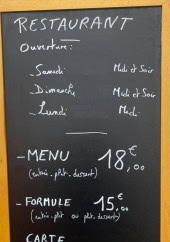 RESTAURANT
Ouverture :
_ Samedi Midi et Soir
_ Dimanche Midi et Soir
_ Lundi Midi
- MENU 18€,00
(entrée_plt_dessert)
- FORMULE 15€,00
(entrée_plt ou plt_dessert)
CARTE